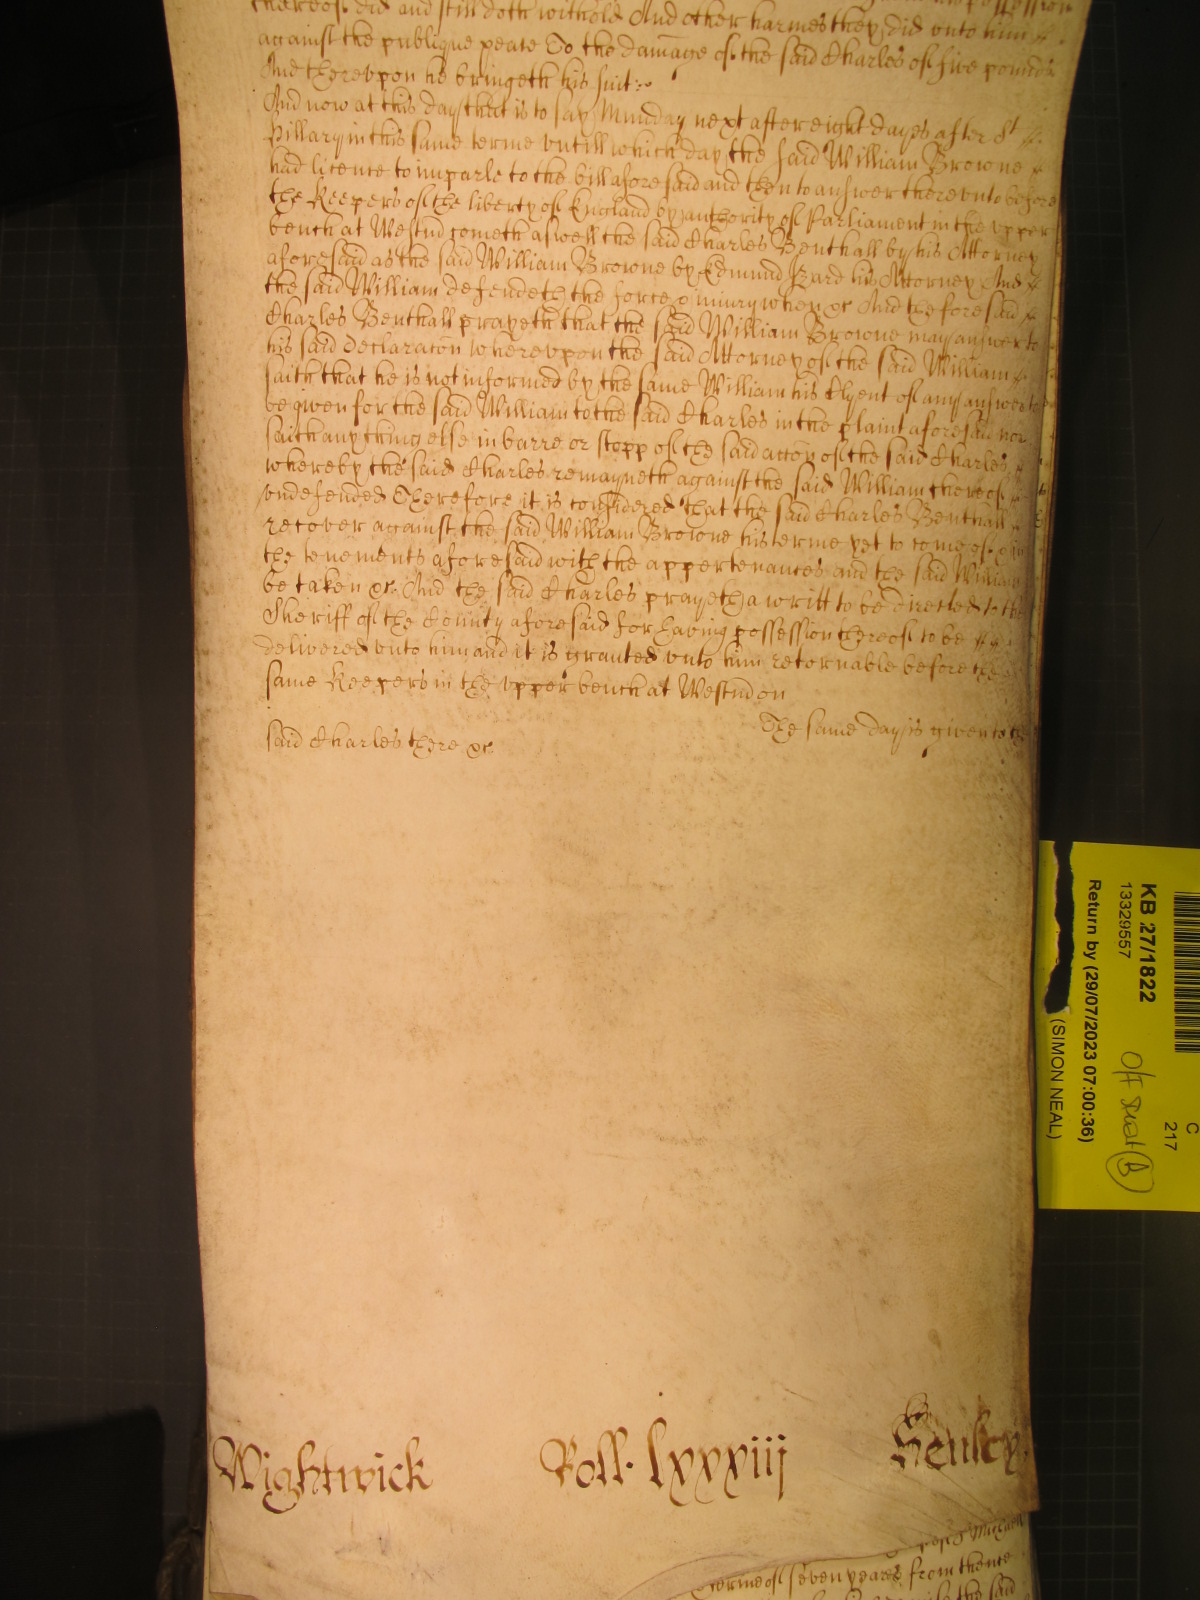 thereof did and still doth withold And other harmes they did vnto him
against the publique peace To the damage of the said Charles of five pounds
And therevpon he bringeth his suit
And now at this day that is to say Munday next after eight dayes after St
Hillary in this same terme vntill which day the said William Browne
had licence to imparle to the bill aforesaid and then to answer therevnto before
the Keepers of the liberty of England by authority of Parliament in the vpper
bench at Westm cometh aswell the said Charles Benthall by his Attorney
aforesaid as the said William Browne by Edmund Izard his Attorney And
the said William defendeth the force & iniury when &c And the foresaid
Charles Benthall prayeth that the said William Browne may answer to
his said declaracon wherevpon the said Attorney of the said William
saith that he is not informed by the same William his Clyent of any answer to
be given for the said William to the said Charles in the plaint aforesaid nor
saith any thing else in barre or stopp of the said accon of the said Charles
whereby the said Charles remayneth against the said William thereof
vndefended Therefore it is considered that the said Charles Benthall
recover against the said William Browne his terme yet to come of & in
the tenements aforesaid with the appertenances and the said William
be taken &c. And the said Charles prayeth a writt to be directed to the
Sheriff of the County aforesaid for having possession thereof to be
delivered vnto him and it is granted vnto him retornable before the
same Keepers in the vpper bench at Westm on
The same day is given to the
said Charles there &c.
Wightwick Roll. lxxxiij Henley
terme of seven yeares from thence
the said
KB 27/1822
13329557
Return by (29/07/2023 07:00:36)
(SIMON NEAL)
C
217